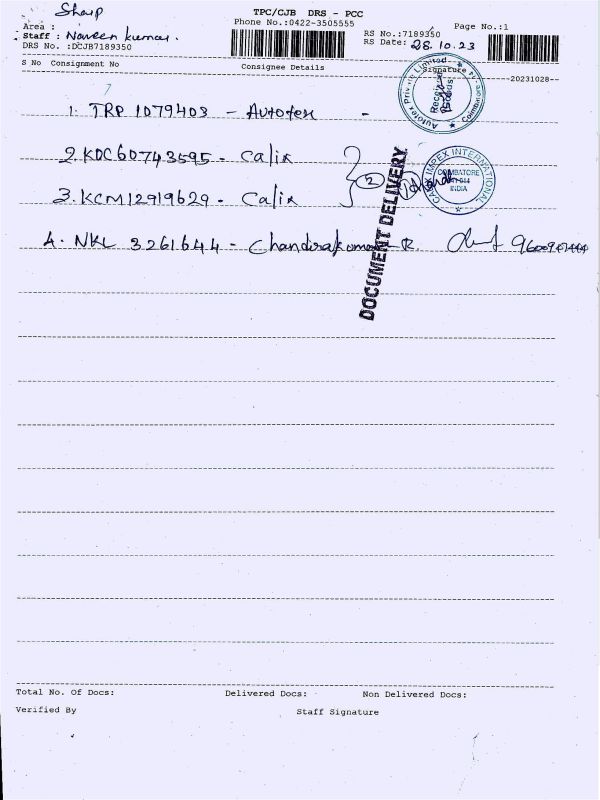 Sharp
TPC/CJB DRS - PCC
Area :
Phone No.:0422-3505555
Page No.:1
Staff : Naveen kumar.
RS No.:7189350
DRS No. :DCJB7189350
RS Date: 28.10.23
S No Consignment No
Consignee Details
Signature
--20231028--
Autotex Private Limited
Coimbatore
Received
Goods
1. TRP 1079403 - Autotex -
2. KDC60743595 - Calix
3. KCM12919629 - Calix
2
CALIX IMPEX INTERNATIONAL
COIMBATORE
INDIA
DOCUMENT DELIVERY
4. NKL 3261644 - Chandirakumar R
Total No. Of Docs:
Delivered Docs:
Non Delivered Docs:
Verified By
Staff Signature